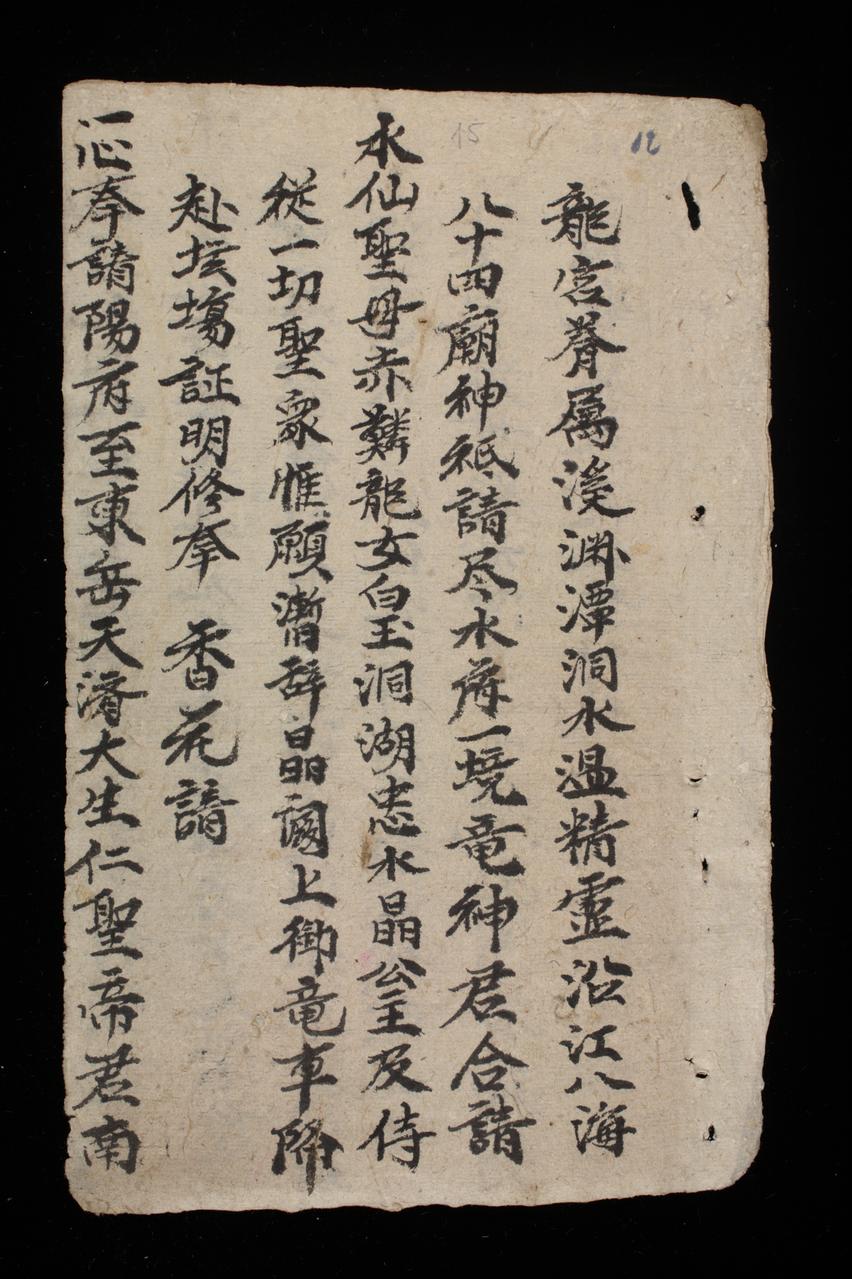 12
15
龍宮眷属溪渊潭洞水温精靈沿江八海
八十四廟神祇請尽水府一境竜神君合請
水仙聖母赤鱗龍女白玉洞湖忠水晶公主及侍
従一切聖衆惟願暫辞晶闕上御竜車降
赴場証明修奉 香花請
一心奉請陽府至東岳天濟大生仁聖帝君南